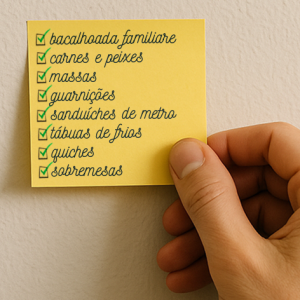 bacalhoada familiare
carnes e peixes
massas
guarnições
sanduíches de metro
tábuas de frios
quiches
sobremesas